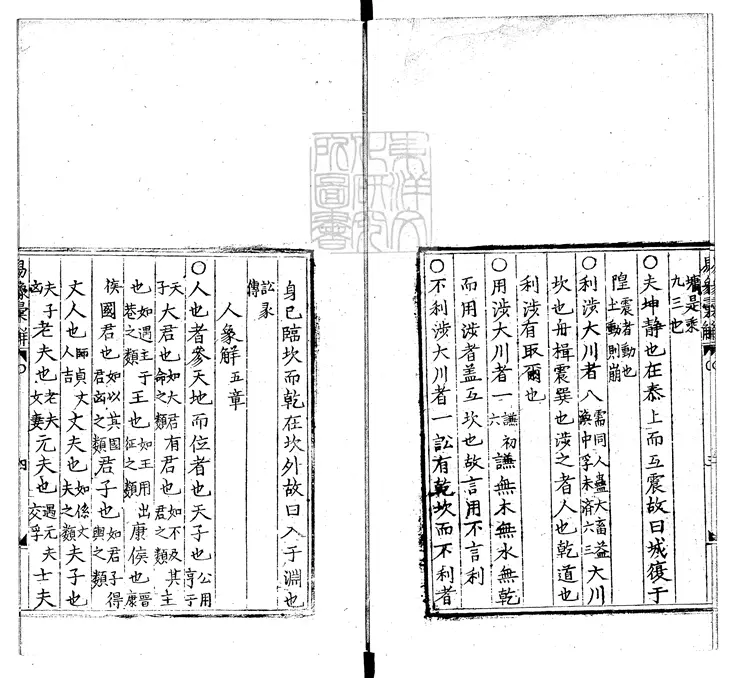 易象彙解 三
墉是乘九三也
○夫坤靜也在泰上而互震故曰城復于
隍震者動也土動則崩
○利涉大川者八需同人蠱大畜益渙中孚未濟六三大川
坎也舟楫震巽也涉之者人也乾道也
利涉有取爾也
○用涉大川者一謙初六謙無木無水無乾
而用涉者蓋互坎也故言用不言利
○不利涉大川者一訟有乾坎而不利者
身已臨坎而乾在坎外故曰入于淵也
訟彖傳
人象解五章
○人也者參天地而位者也天子也公用亨于
天子大君也如大君命之類有君也如不及其君之類主
也如遇主于巷之類王也如王用出征之類康侯也晉康
侯國君也如以其國君凶之類君子也如君子得輿之類
丈人也師貞丈人吉丈夫也如係丈夫之類夫子也
夫子凶老夫也老夫女妻元夫也遇元夫交孚士夫
易象彙解 四
東洋文化研究所圖書